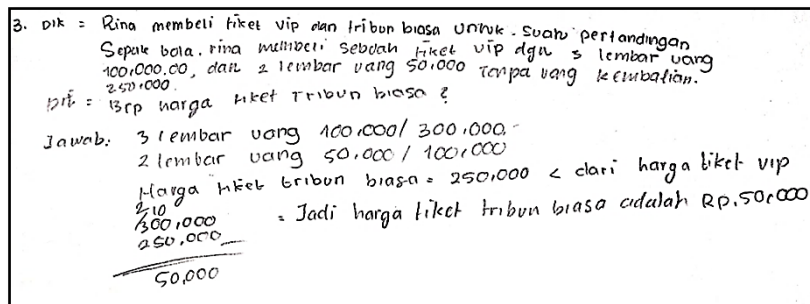 3. Dik = Rina membeli tiket vip dan tribun biasa untuk. Suatu pertandingan
Sepak bola. rina membeli sebuah tiket vip dgn 3 lembar uang
100,000.00, dan 2 lembar uang 50.000 Tanpa uang kembalian.
250.000.
Dit = Brp harga tiket Tribun biasa ?
Jawab: 3 lembar uang 100.000/ 300.000.-
2 lembar uang 50.000 / 100,000
Harga tiket tribun biasa = 250,000 < dari harga tiket vip
2 10
300,000 = Jadi harga tiket tribun biasa adalah Rp.50,000
250,000
50,000